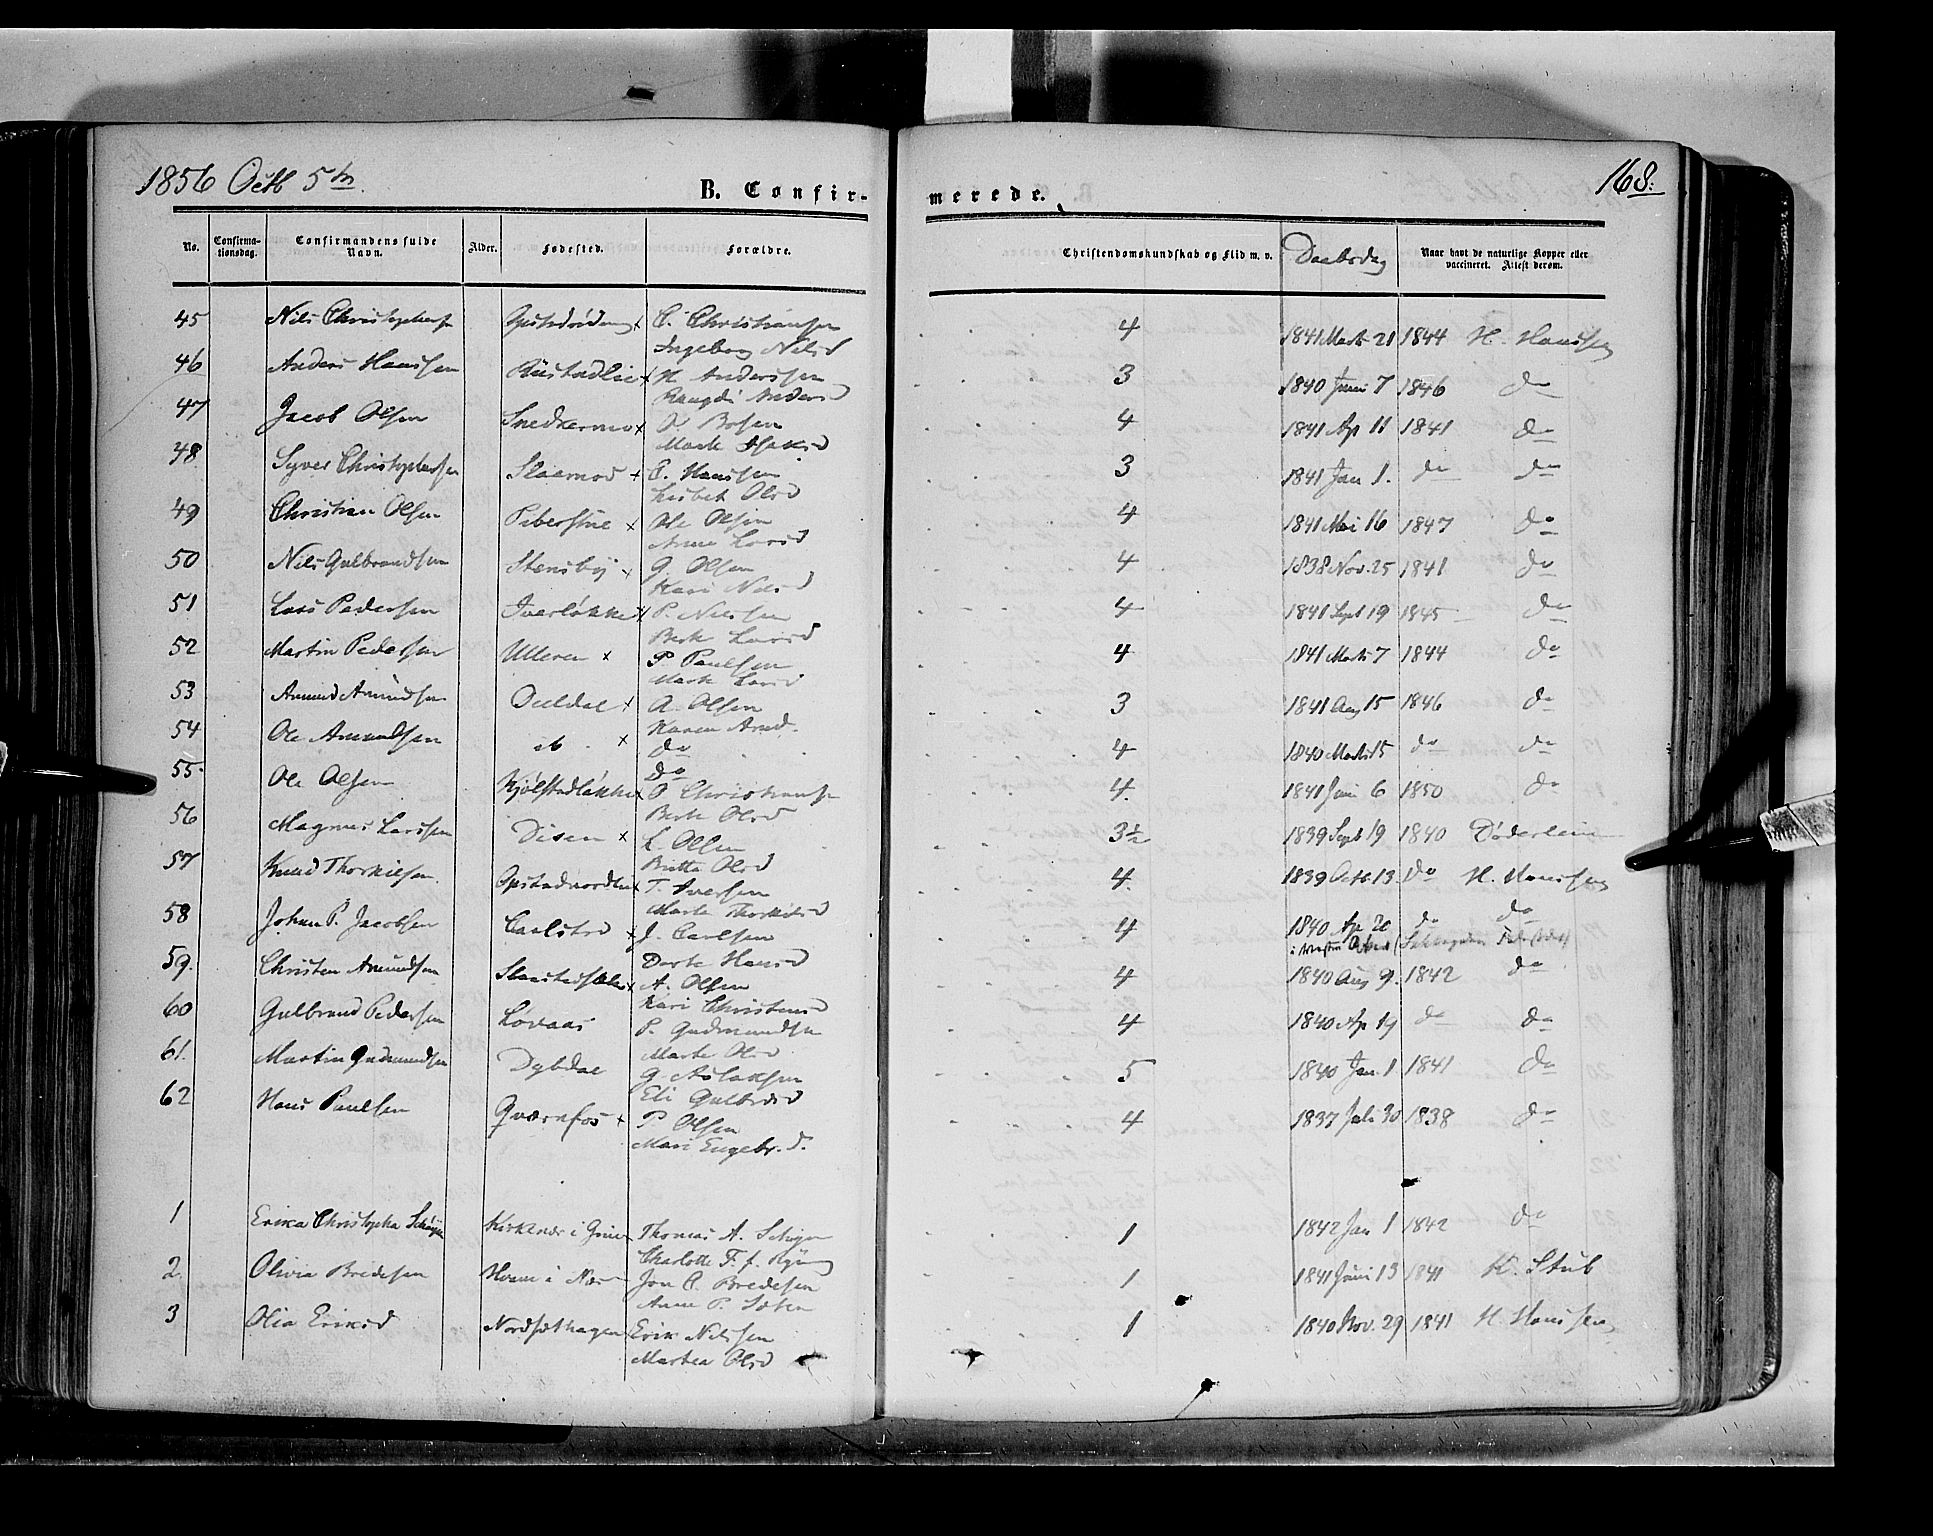 1856 Octb 5te
B. Confirmerede.
168.
No. Confirmationsdag. Confirmandens fulde Navn. Alder. Fødested. Forældre. Christendomskundskab og Flid m. v. Daabsdag Naar havt de naturlige Kopper eller vaccineret. Attest derom.
45 Nils Christophersen C. Christiansen 4 1841 Marts 21 1844 H. Hanssen
Ingeborg Nilsd
46 Anders Hanssen H. Anderssen 3 1840 Juni 7 1846 do
Anders d
47 Jacob Olsen Snedkermo x O. Bosen 4 1841 Ap 11 1841 do
Marte
48 Syver Christophersen x C. Hanssen 3 1841 Jan 1. do do
Lisbet Olsd
49 Christian Olsen Peberstue x Ole Olsen 4 1841 Mai 16 1847 do
Anne Larsd
50 Nils Gulbrandsen Stensby x G. Olsen 4 1838 Nov. 25 1841 do
Kari Nilsd
51 Lars Pedersen Iverløkke x P. Nilssen 4 1841 Sept 19 1845 do
Berte Larsd
52 Martin Pedersen Ulleren x P Paulsen 4 1841 Marts 7 1844 do
Marte Larsd
53 Amund Amundsen Duldal x A. Olsen 3 1841 Aug 15 1846 do
Karen Amd.
54 Ole Amundsen ib x do 4 1840 Marts 15 do do
do
55 Ole Olsen Kjølstadløkke x O Christiansen 4. 1841 Juni 6 1850 do
Berte Olsd
56 Magnus Larssen Disen x L. Olsen 3½ 1839 Sept 19 1840 Døderlein
Britta Olsd
57 Knud Thorkilsen Opstadnordlie x T. Iversen 4. 1839 Octb 13 do H. Hanssen
Marte Thorkilsd
58 Johan P. Jacobsen Carlstad x J. Carlsen 4 1840 Ap 20 do do
Dorte Hansd
59. Christen Amundsen x A. Olsen 4 1840 Aug 9. 1842 do
Kari Christensd
60 Gulbrand Pedersen Løvaas P. Gudmundsen 4 1840 Ap 19 do do
Marte Olsd
61. Martin Gudmundsen Dybdal G. Aslaksen 5 1840 Jan. 1 1841 do
Eli Gulbrd
62 Hans Paulsen Qværnfos x P Olsen 4 1837 Juli 30 1838 do
Mari Engebr. d.
1 Erica Christopha Kirkenær i Thomas A. 1 1842 Jan 1 1842 do
Charlotte F. f.
2. Olivia Bredesen i Næs Jon C. Bredesen 1 1841 Juni 13 1841 K. Stub
Anne P.
3 Olia Eriksd Nordsethagen Erik Nilssen 1 1840 Nov. 29 1841 H. Hanssen
Martea Olsd